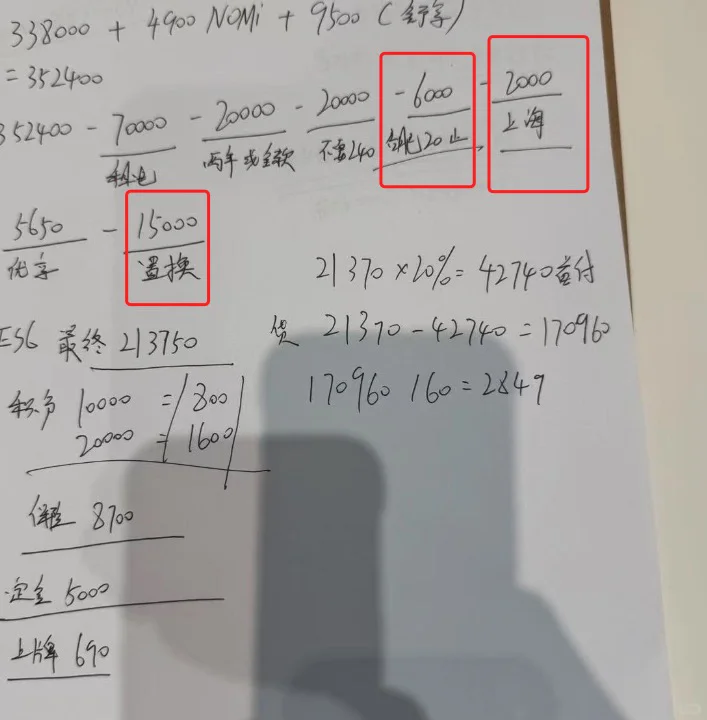 338000 + 4900 NOMi + 9500 (舒享)
= 352400
352400 - 70000 - 20000 - 20000 - 6000 - 2000
租电 两年或全款 不要240 20止 上海
5650 - 15000
优享 置换
21370 × 20% = 42740 首付
ES6 最终 213750
贷 21370 - 42740 = 170960
积分 10000 = 800
20000 = 1600
170960 160 = 2849
保险 8700
定金 5000
上牌 690